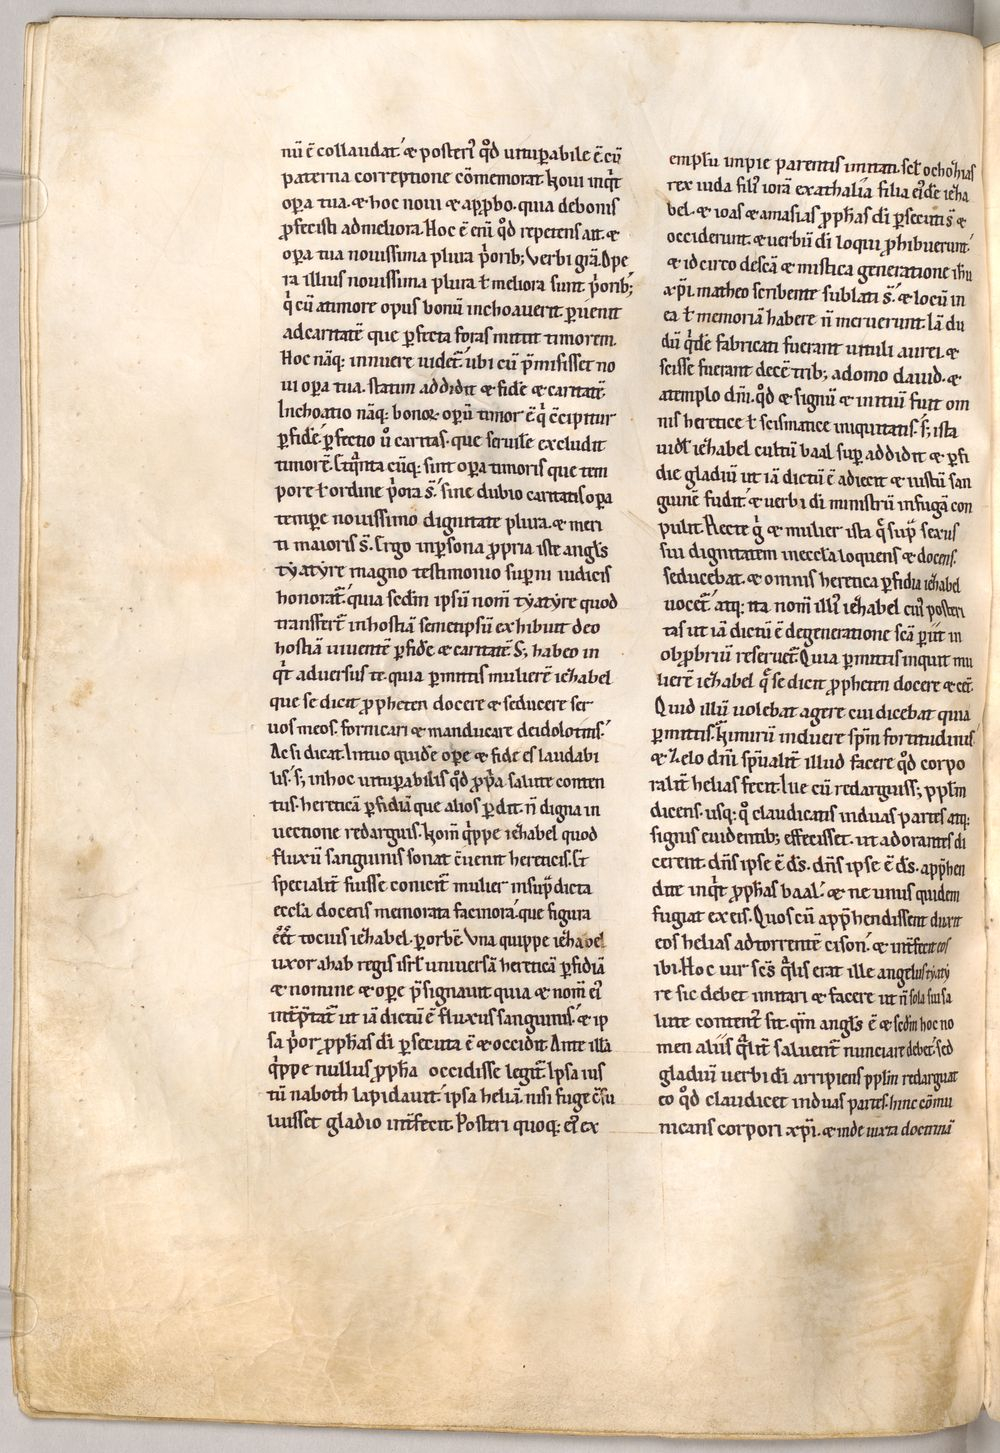 nū ē collaudat. & posteri' qd̊ uitup̱abile ē. cū
paterna correptione cōmemorat. Noui inqͥt
op̱a tua. & hoc noui & app̱bo. quia de bonis
ꝓfecisti ad meliora. Hoc ē eni qd̊ repetens ait. &
op̱a tua nouissima plura pͥorib; Verbi grā. Ope
ra illius nouissima plura ł meliora sunt pͥorib;
qͥ cū a timore opus bonū inchoauerit p̱uenit
ad caritatē que p̱fecta foras mittit timorem.
Hoc nāq: innuere uidet᷑ ubi cū p̄misisset no
ui op̱a tua. statim addidit & fidē & caritatē.
Inchoatio nāq: bonoꝝ opeꝝ timor ē qͥ ēcipitur
p̱ fidē. p̱fectio u͛o caritas. que seruile excludit
timorē. Et qͣnta cūq: sint op̱a timoris que tem
pore ł ordine pͥora s̄. sine dubio caritatis op̱a
tempe nouissimo dignitate plura. & meri
ti maioris s̄. Ergo in p̱sona ꝓpria iste angl̄s
tẏatẏre magno testimonio sup̱ni iudicis
honorat᷑. quia scdm̄ ipsū nom̄ tẏatẏre quod
transfert᷑ in hostiā semetipsū exhibuit deo
hostiā uiuentē p̱ fidē & caritatē. S; habeo in
qͥt aduersus te. quia p̱mittis mulierē iezhabel
que se dicit ꝓpheten docere & seducere ser
uos meos. fornicari & manducare de idolotitis.
Ac si dicat. In tuo quidē ope & fide es laudabi
lis. s; in hoc uitup̱abilis qd̊ ꝓp̱a salute conten
tus. hereticā p̱fidiā que alios p̱dit. n̄ digna in
uectione redarguis. Nom̄ qͥppe iezhabel quod
fluxū sanguinis sonat cūenit hereticis. Et
specialit᷑ fuisse conicit᷑ mulier in sup̱dicta
eccl̄a docens memorata facinora. que figura
eēt tocius iezhabel. p̱ orbē. Vna quippe iezhabel
uxor ahab regis isrl̄ uniuersā hereticā p̱fidiā
& nomine & ope p̄signauit quia & nom̄ ei'
int͛p̄tat᷑ ut iā dictū ē fluxus sanguinis. & ip
sa pͥor ꝓph̄as dī p̱secuta ē & occidit. Ante illā
qͥppe nullus ꝓph̄a occidisse legit᷑. Ipsa ius
tū naboth lapidauit. ipsa heliā. nisi fuge ēsu
luisset gladio int͛fecit. Posteri quoq: ei' ex
emplū impie parentis imitati. scl̄ ochoz̄ias
rex iuda fili' iorā ex athalia filia ei'dē iezha
bel. & ioas & amasias ꝓph̄as dī p̱secuti s̄ &
occiderunt. & uerbū dī loqui ꝓhibuerunt.
& idcirco de scā & mistica generatione ih̄u
xp̄i. matheo scribente sublati s̄. & locū in
ea ł memoriā habere n̄ meruerunt. Iā du
dū qͥdē fabricati fuerant uituli aurei. &
scisse fuerant decē trib; a domo dauid. &
a templo dn̄i. qd̊ & signū & initiū fuit om
nis heretice ł scismatice iniquitatis. s; ista
uidł iezhabel cultū baal sup̱ addidit & p̱fi
die gladiū ut iā dictū ē adiecit & iustū san
guinē fudit. & uerbi dī ministrū in fugā con
pulit. Recte g̊ & mulier ista qͣ sup̱ sexus
sui dignitatem in eccl̄a loquens & docens.
seducebat. & omnis heretica p̱fidia iezhabel
uocet᷑. atq: ita nom̄ illi' iezhabel cui' posteri
tas ut iā dictū ē de generatione scā p̱iit in
obꝓbriū reseruet᷑. Quia p̱mittis inquit mu
lierē iezhabel qͣ se dicit ꝓpheten docere & cet᷑.
Quid illū uolebat agere cui dicebat quia
p̱mittis. Nimirū induere sp̄m fortitudinis
& zelo dn̄i sp̄ualit᷑ illud facere qd̊ corpo
ralit᷑ helias fecit. Iue cū redarguiss; pp̄lm
dicens. usq: qͦ claudicatis in duas partes atq:
signis euidentib; effecisset. ut adorantes di
cerent. dn̄s ipse ē ds̄. dn̄s ipse ē ds̄. app̄hen
dite inqͥt ꝓph̄as baal. & ne unus quidem
fugiat ex eis. Quos cū app̄hendissent duxit
eos helias ad torrentē cison. & int͛fecit eos
ibi. Hoc uir sc̄s qͣlis erat ille angelus tẏatẏ
re sic debet imitari & facere ut n̄ sola sui sa
lute content' sit. qm̄ angl̄s ē & scdm̄ hoc no
men aliis qͣlit᷑ saluent᷑ nunciare debet. sed
gladiū uerbi dī arripiens pp̄lm redarguat
eo qd̊ claudicet in duas partes. hinc cōmu
nicans corpori xp̄i. & inde iuxta doctrinā